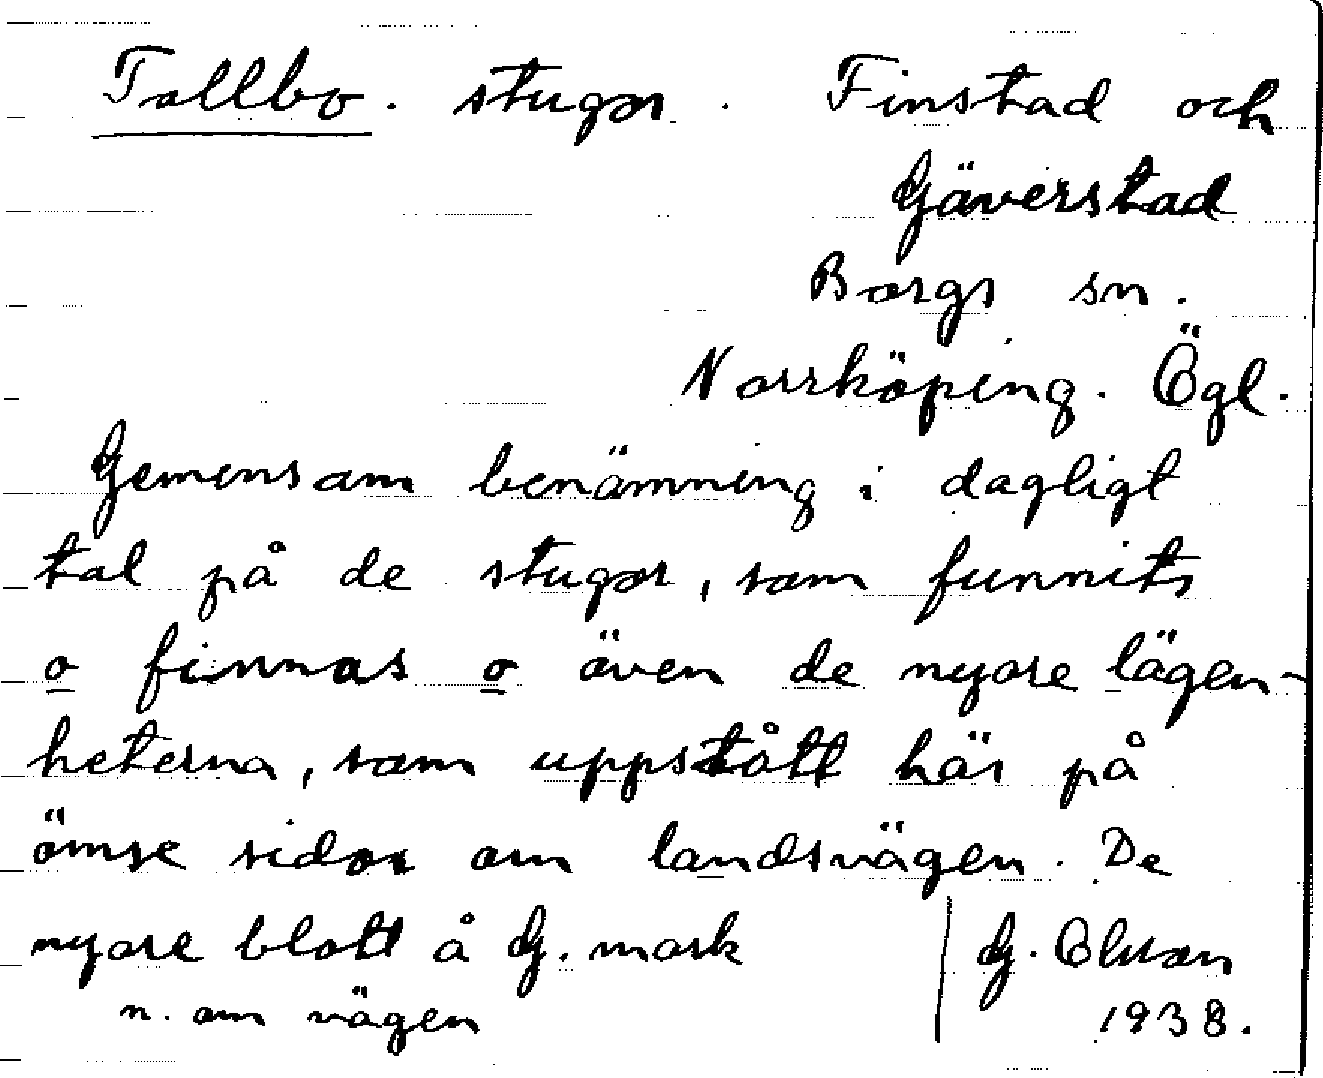 Tallbo. stugor. Finstad och
Gäverstad
Borgs sn.
Norrköping. Ögl.
Gemensam benämning i dagligt
tal på de stugor, som funnits
o finnas o även de nyare lägen-
heterna, som uppstått här på
ömse sidor om landsvägen. De
nyare blott å G. mark
n. om vägen
G. Olson
1938.